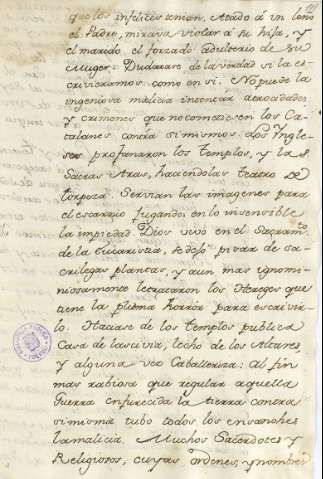 que los infelices tenian, Atado á un leño
el Padre, mirava violar á su hija, y
el marido el forzado adulterio de su
Muger. Dudarase de la verdad si la es-
crivieramos como en si. No puede la
ingeniosa malicia inventar atrocidades
y crimenes que no cometiesen los Ca-
talanes contra si mismos. Los Ingle-
ses profanaron los templos, y las
Sacras Aras, haciendolas teatro de
torpeza. Servian las imagenes para
el escarnio fugando en lo insensible
la impiedad. Dios vivo en el Sacramto
de la Eucaristia, se dejó pisar de sa-
crilegas plantas, y aun mas ignomi-
niosamente le trataron los Hereges que
tiene la pluma horror para escrivir-
lo. Haciase de los templos publica
Casa de lascivia, lecho de los Altares,
y alguna vez Caballeriza: Al fin
mas rabiosa que regular aquella
Guerra enfurecida la tierra contra
si misma tubo todos los ensanches
la malicia. Muchos Sacerdotes y
Religiosos, cuyas ordenes, y nombres